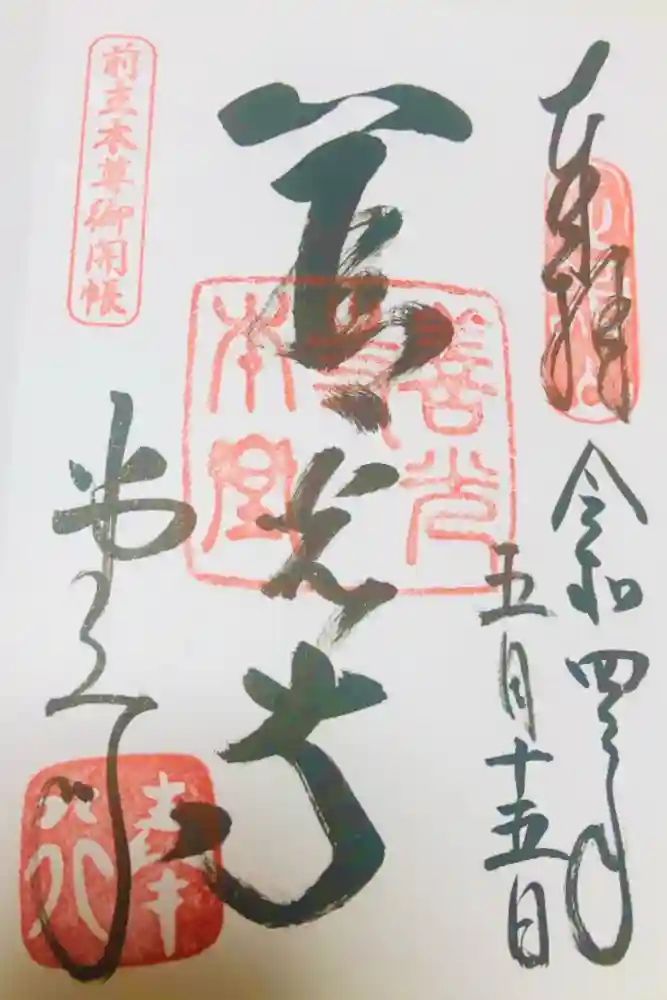 奉拝
令和四年
五月十五日
善光寺
善光寺本堂
前立本尊御開帳